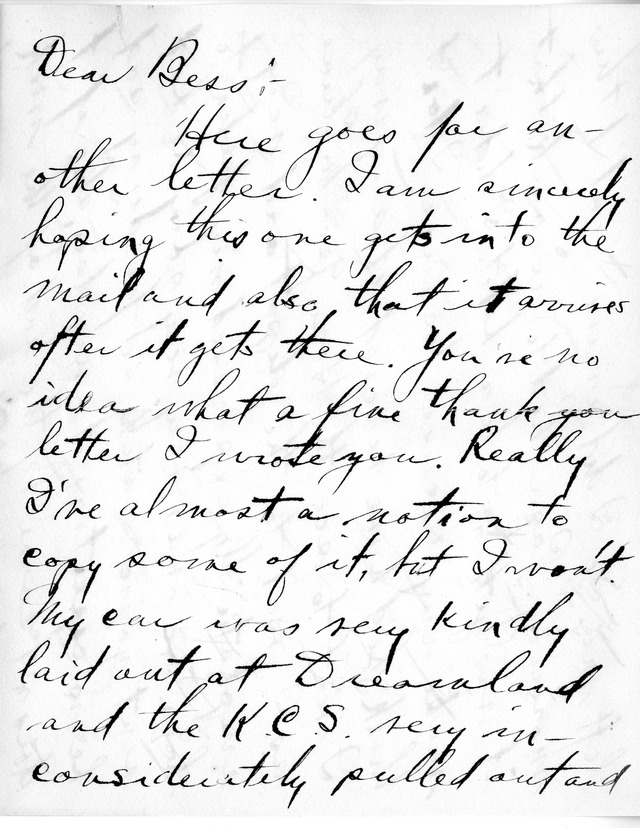 Dear Bess:-
Here goes for an-
other letter. I am sincerely
hoping this one gets into the
mail and also that it arrives
after it gets there. You've no
idea what a fine thank you
letter I wrote you. Really
I've almost a notion to
copy some of it, but I won't.
My car was very kindly
laid out at Dreamland
and the K.C.S. very in-
considerately pulled out and